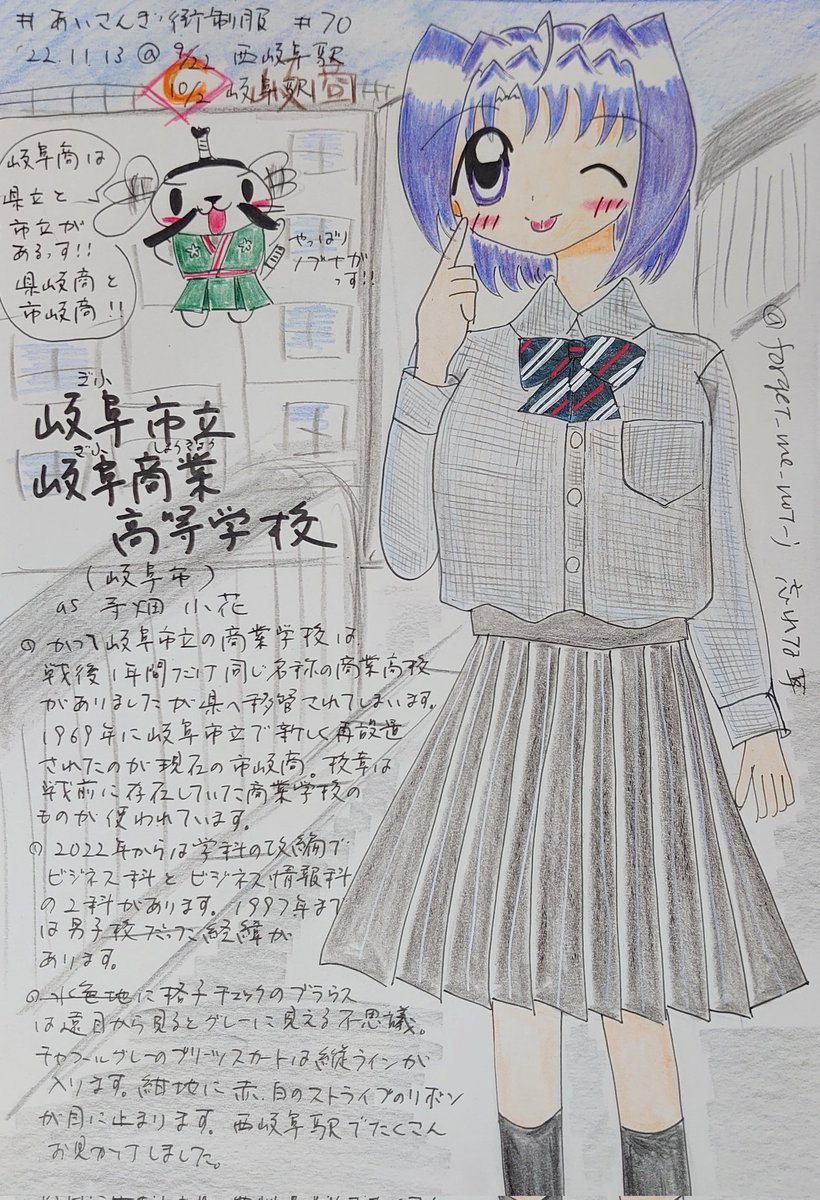 #あいさんぎ街制服 #70
'22.11.13 @ 9/22 西岐阜駅
10/2 岐阜駅
岐商
岐阜商は
県立と
市立が
あるっす!!
県岐商と
市岐商!!
やっぱり
ノブナガ
っす!!
ぎふ
岐阜市立
ぎふ しょうぎょう
岐阜商業
高等学校
(岐阜市)
as 寺畑 小花
かつて岐阜市立の商業学校は
戦後1年間だけ同じ名称の商業高校
がありましたが県へ移管されてしまいます。
1969年に岐阜市立で新しく再設置
されたのが現在の市岐商。校章は
戦前に存在していた商業学校の
ものが使われています。
2022年からは学科の改編で
ビジネス科とビジネス情報科
の2科があります。1997年まで
は男子校だった経緯が
あります。
水色地に格子チェックのブラウス
は遠目から見るとグレーに見える不思議。
チャコールグレーのプリーツスカートは縦ラインが
入ります。紺地に赤、白のストライプのリボン
が目に止まります。西岐阜駅でたくさん
お見かけしました。
@forget_me_not_j 忘れな草